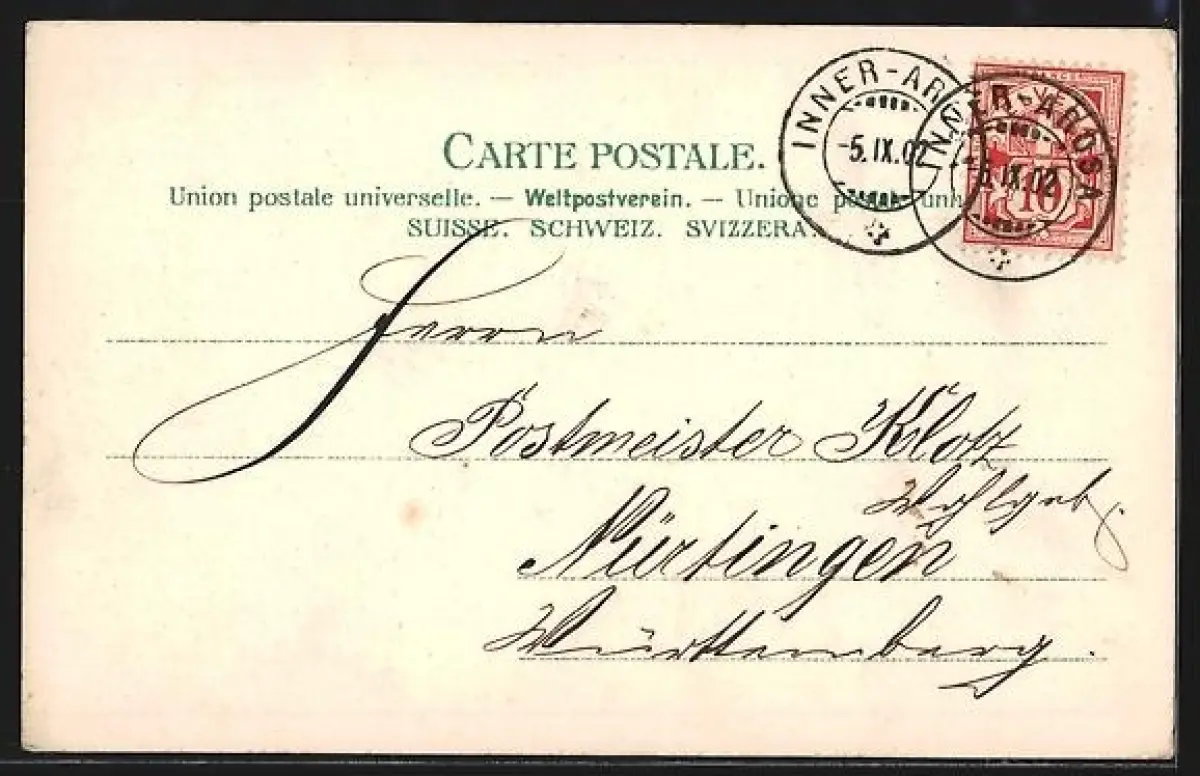 CARTE POSTALE.
Union postale universelle. — Weltpostverein. — Unione p
SUISSE. SCHWEIZ. SVIZZERA.
INNER-AR
-5.IX.02
INNER-AROSA
IX.02
10
Herrn
Postmeister Klotz
Wohlgeb.
Nürtingen
Württemberg.